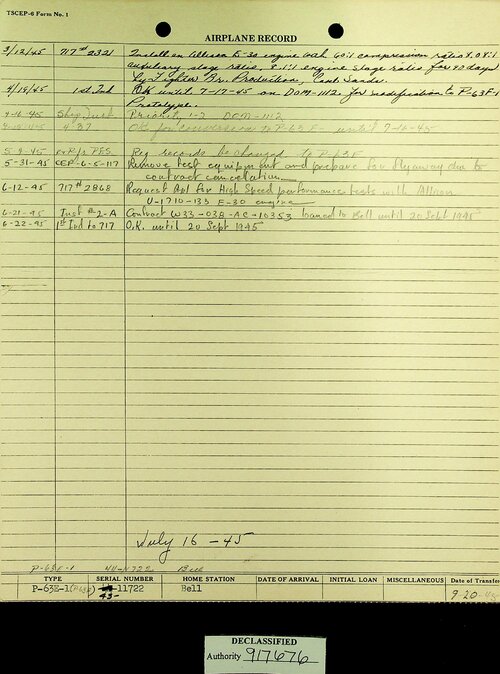 TSCEP-6 Form No. 1
AIRPLANE RECORD
3/12/45 717# 2321 Install an Allison E-30 engine with 6.0:1 compression ratio & 8.1:1
auxiliary stage ratio, 8.1:1 engine stage ratio for 90 days
by Fighter Br. Production, Capt Sands.
4/14/45 1st Ind OK until 7-17-45 on DOM-1112 for modification to P-63F-1
Prototype.
4-16-45 Shop Inst Priority 1-2 DOM-1112
4-37 OK for conversion to P-63F until 7-16-45
5-9-45 Req records be changed to P-63F
5-31-45 CEP-6-5-117 Remove test equipment and prepare for flyaway due to
contract cancelation
6-12-45 717# 2868 Request Apl for High Speed performance tests with Allison
V-1710-135 E-30 engine
6-21-45 Inst #2-A Contract W33-038-AC-10353 loaned to Bell until 20 Sept 1945
6-22-45 1st Ind to 717 O.K. until 20 Sept 1945
July 16 -45
P-63E-1 44-11722 Bell
TYPE SERIAL NUMBER HOME STATION DATE OF ARRIVAL INITIAL LOAN MISCELLANEOUS Date of Transfer
P-63E-1 43-11722 Bell 9-20-45
DECLASSIFIED
Authority 917676